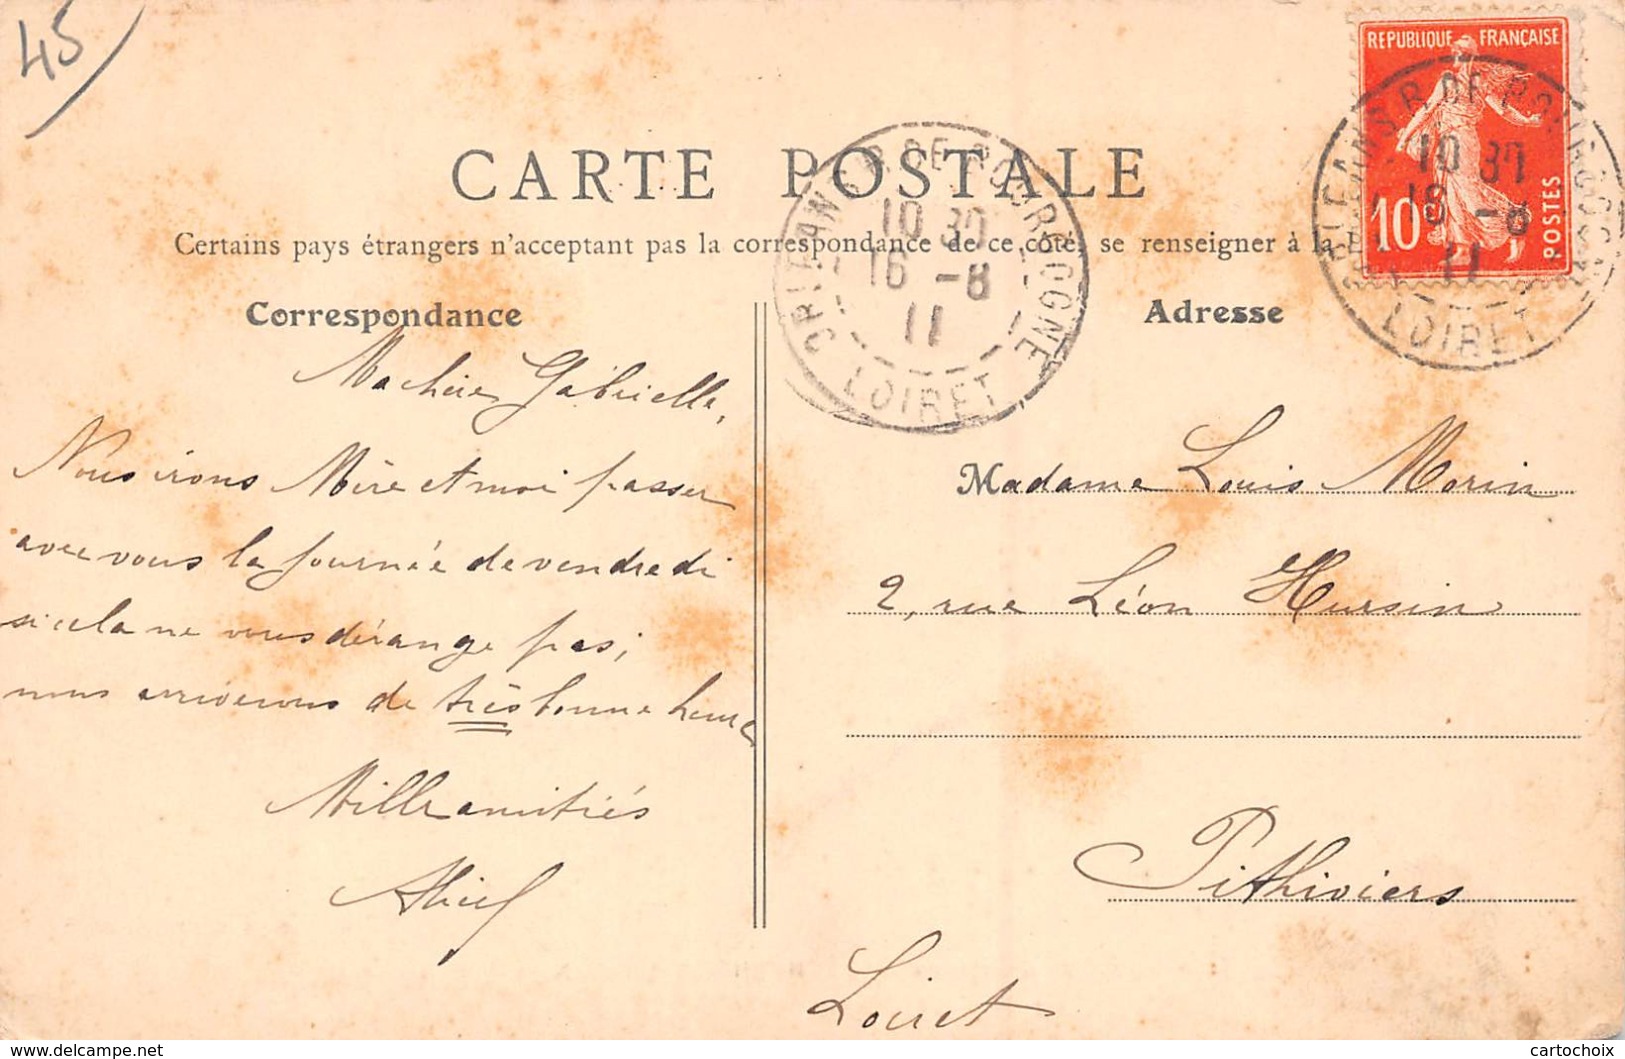 45
CARTE POSTALE
Certains pays étrangers n'acceptant pas la correspondance de ce côté, se renseigner à la
REPUBLIQUE FRANÇAISE
10c
POSTES
ORLEANS R. DE BOURGOGNE
10 30
16 -8
11
LOIRET
ORLEANS R. DE BOURGOGNE
10 30
16 -8
11
LOIRET
Correspondance
Ma chère Gabrielle,
Nous irons Mère et moi passer
avec vous la journée de vendredi
si cela ne vous dérange pas;
nous arriverons de très bonne heure
Mille amitiés
Adresse
Madame Louis Morin
2, rue Léon Hursin
Pithiviers
Loiret
cartochoix